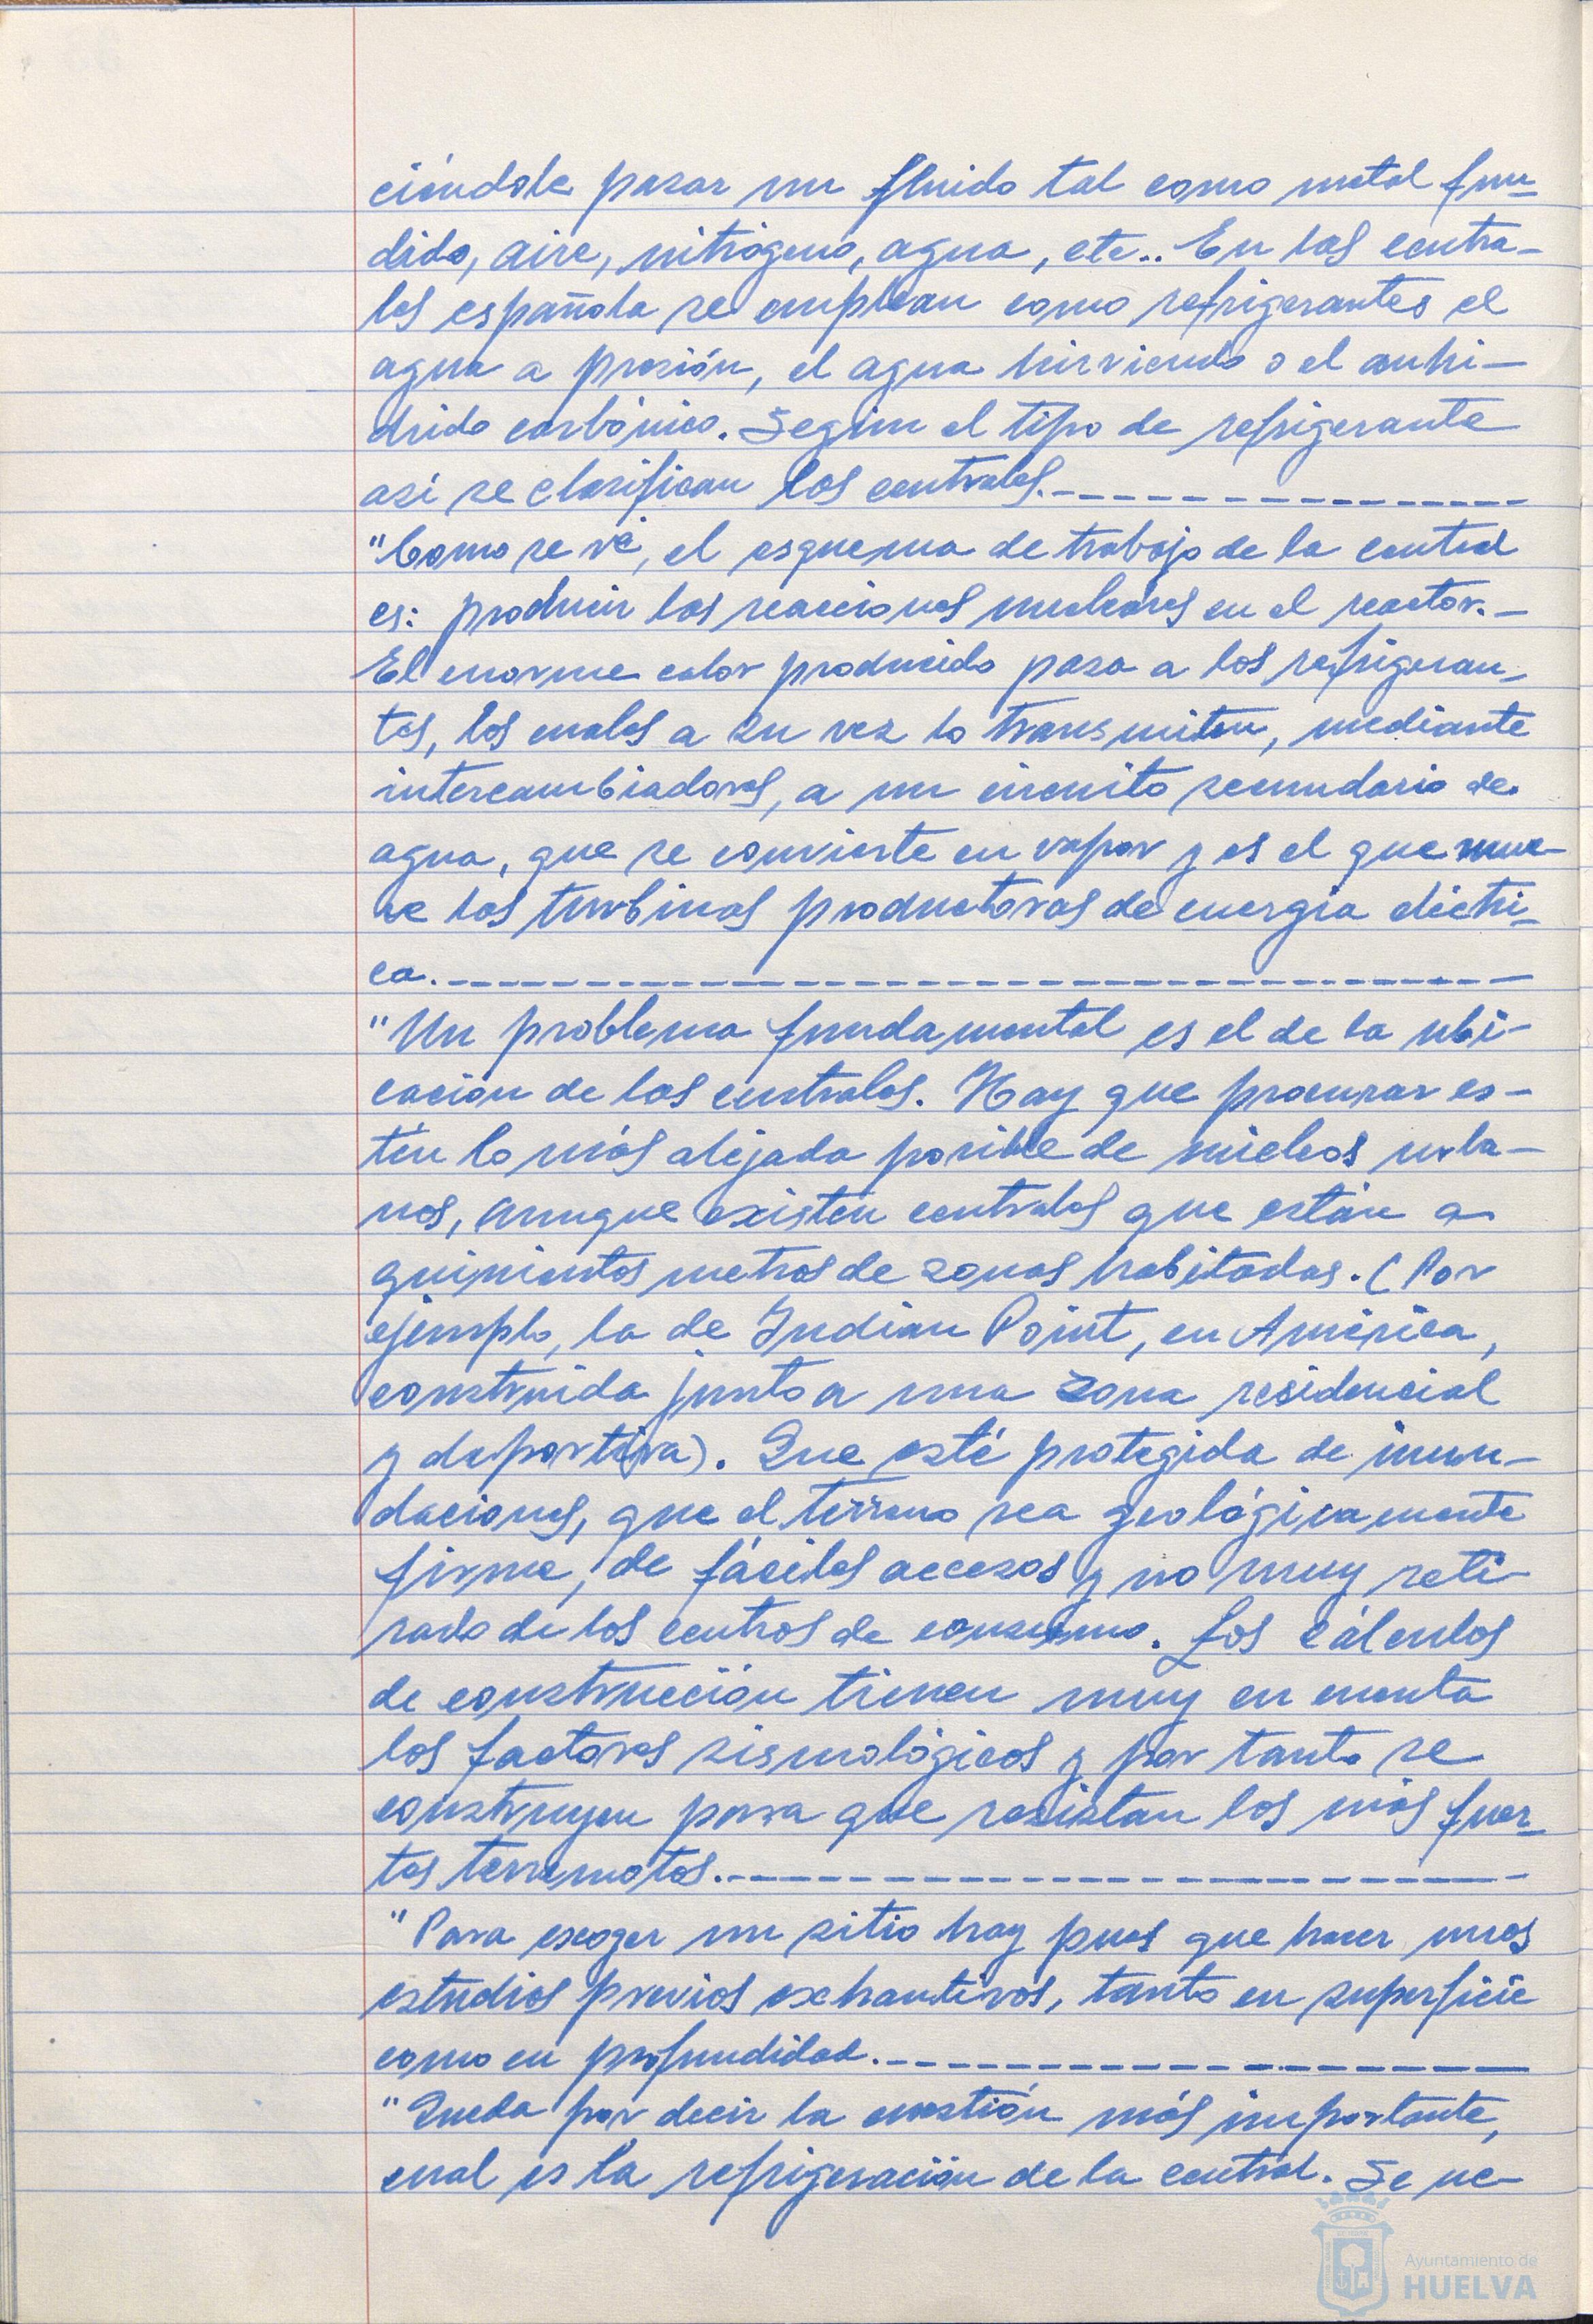 ciéndole pasar un fluido tal como metal fun-
dido, aire, nitrógeno, agua, etc.. En las centra-
les española se emplean como refrigerantes el
agua a presión, el agua hirviendo o el anhi-
drido carbónico. Según el tipo de refrigerante
así se clasifican las centrales.
"Como se vé, el esquema de trabajo de la central
es: producir las reacciones nucleares en el reactor.-
El enorme calor producido pasa a los refrigeran-
tes, los cuales a su vez lo transmiten, mediante
intercambiadores, a un circuito secundario de
agua, que se convierte en vapor y es el que mue-
ve las turbinas productoras de energía eléctri-
ca.
"Un problema fundamental es el de la ubi-
cación de las centrales. Hay que procurar es-
tén lo más alejada posible de núcleos urba-
nos, aunque existen centrales que están a
quinientos metros de zonas habitadas. (Por
ejemplo, la de Indian Point, en América,
construida junto a una zona residencial
y deportiva). Que esté protegida de inun-
daciones, que el terreno sea geológicamente
firme, de fáciles accesos y no muy reti-
rado de los centros de consumo. Los cálculos
de construcción tienen muy en cuenta
los factores sismológicos y por tanto se
construyen para que resistan los más fuer-
tes terremotos.
"Para escoger un sitio hay pues que hacer unos
estudios previos exhautivos, tanto en superficie
como en profundidad.
"Queda por decir la cuestión más importante,
cual es la refrigeración de la central. Se ne-
Ayuntamiento de
HUELVA